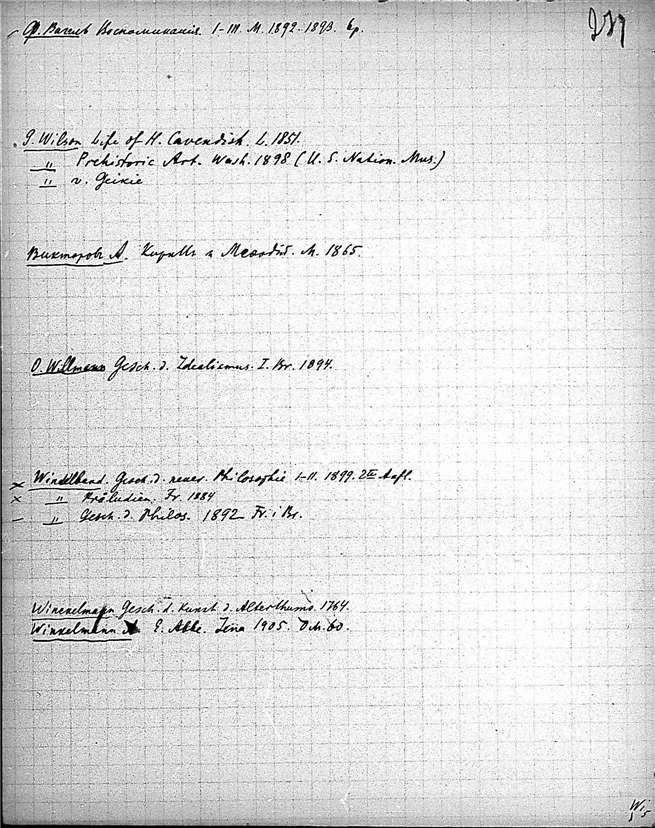 Ф. Вигель Воспоминанія. I-III. М. 1892-1893. 6р.
G. Wilson Life of H. Cavendish. L. 1851.
" Prehistoric Art. Wash. 1898 (U. S. Nation. Mus.)
" v. Geikie
Викторовъ А. Кириллъ и Меѳодій. М. 1865.
O. Willmann Gesch. d. Idealismus. I. Br. 1894.
× Windelband. Gesch. d. neuer. Philosophie I-II. 1899. 2te Aufl.
× " Präludien. Fr. 1884
– " Gesch. d. Philos. 1892 Fr. i Br.
Winckelmann Gesch. d. Kunst d. Alterthums. 1764.
Winkelmann A. E. Abbe. Jena 1905. 0 M. 60.
Wi